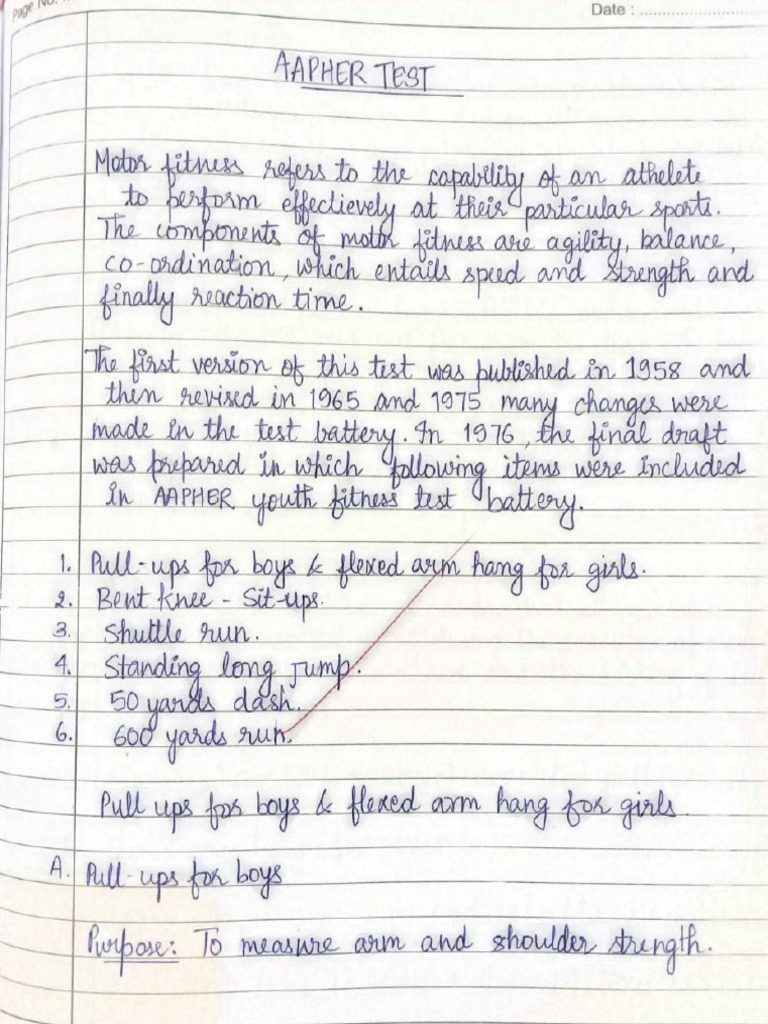 Page No.
Date :
AAPHER TEST
Motor fitness refers to the capability of an athelete
to perform effectievely at their particular sports.
The components of motor fitness are agility, balance,
co-ordination, which entails speed and strength and
finally reaction time.
The first version of this test was published in 1958 and
then revised in 1965 and 1975 many changes were
made in the test battery. In 1976, the final draft
was prepared in which following items were included
in AAPHER youth fitness test battery.
1. Pull-ups for boys & flexed arm hang for girls.
2. Bent knee - Sit-ups.
3. Shuttle run.
4. Standing long jump.
5. 50 yards dash.
6. 600 yards run.
Pull ups for boys & flexed arm hang for girls
A. Pull-ups for boys
Purpose: To measure arm and shoulder strength.